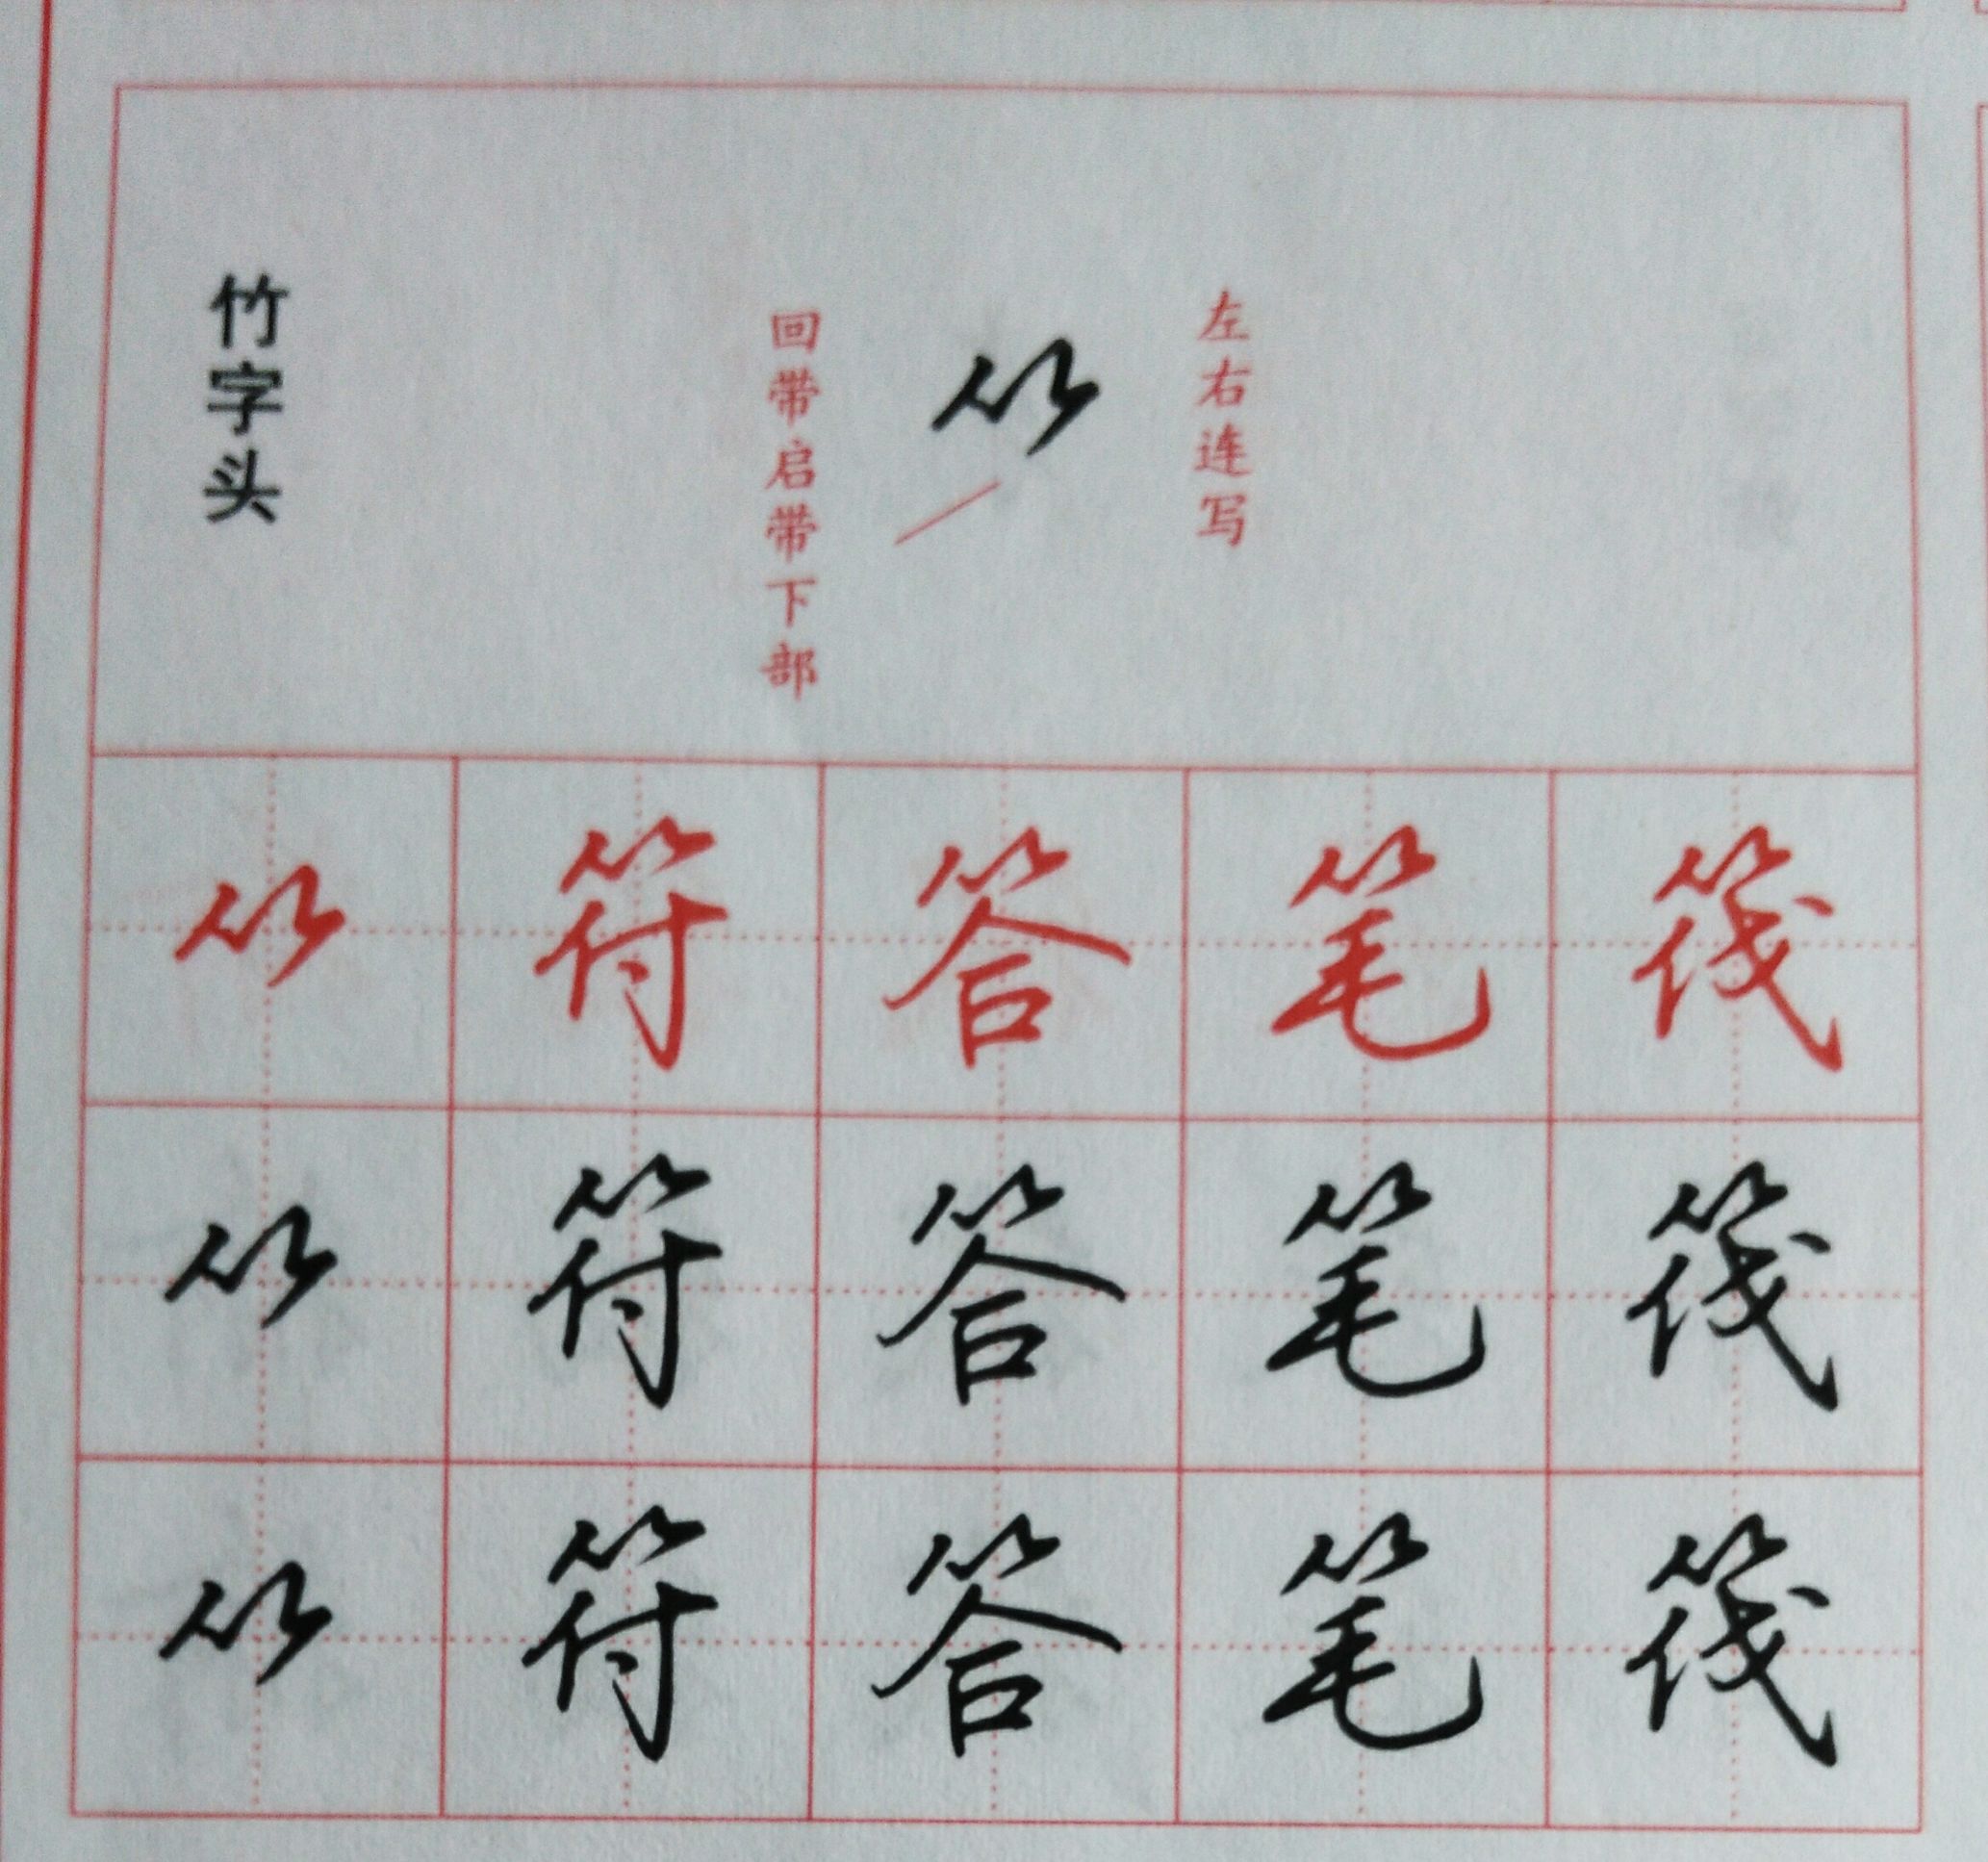 竹字头
回带启带下部
⺮
左右连写
⺮ 符 答 笔 筏
⺮ 符 答 笔 筏
⺮ 符 答 笔 筏